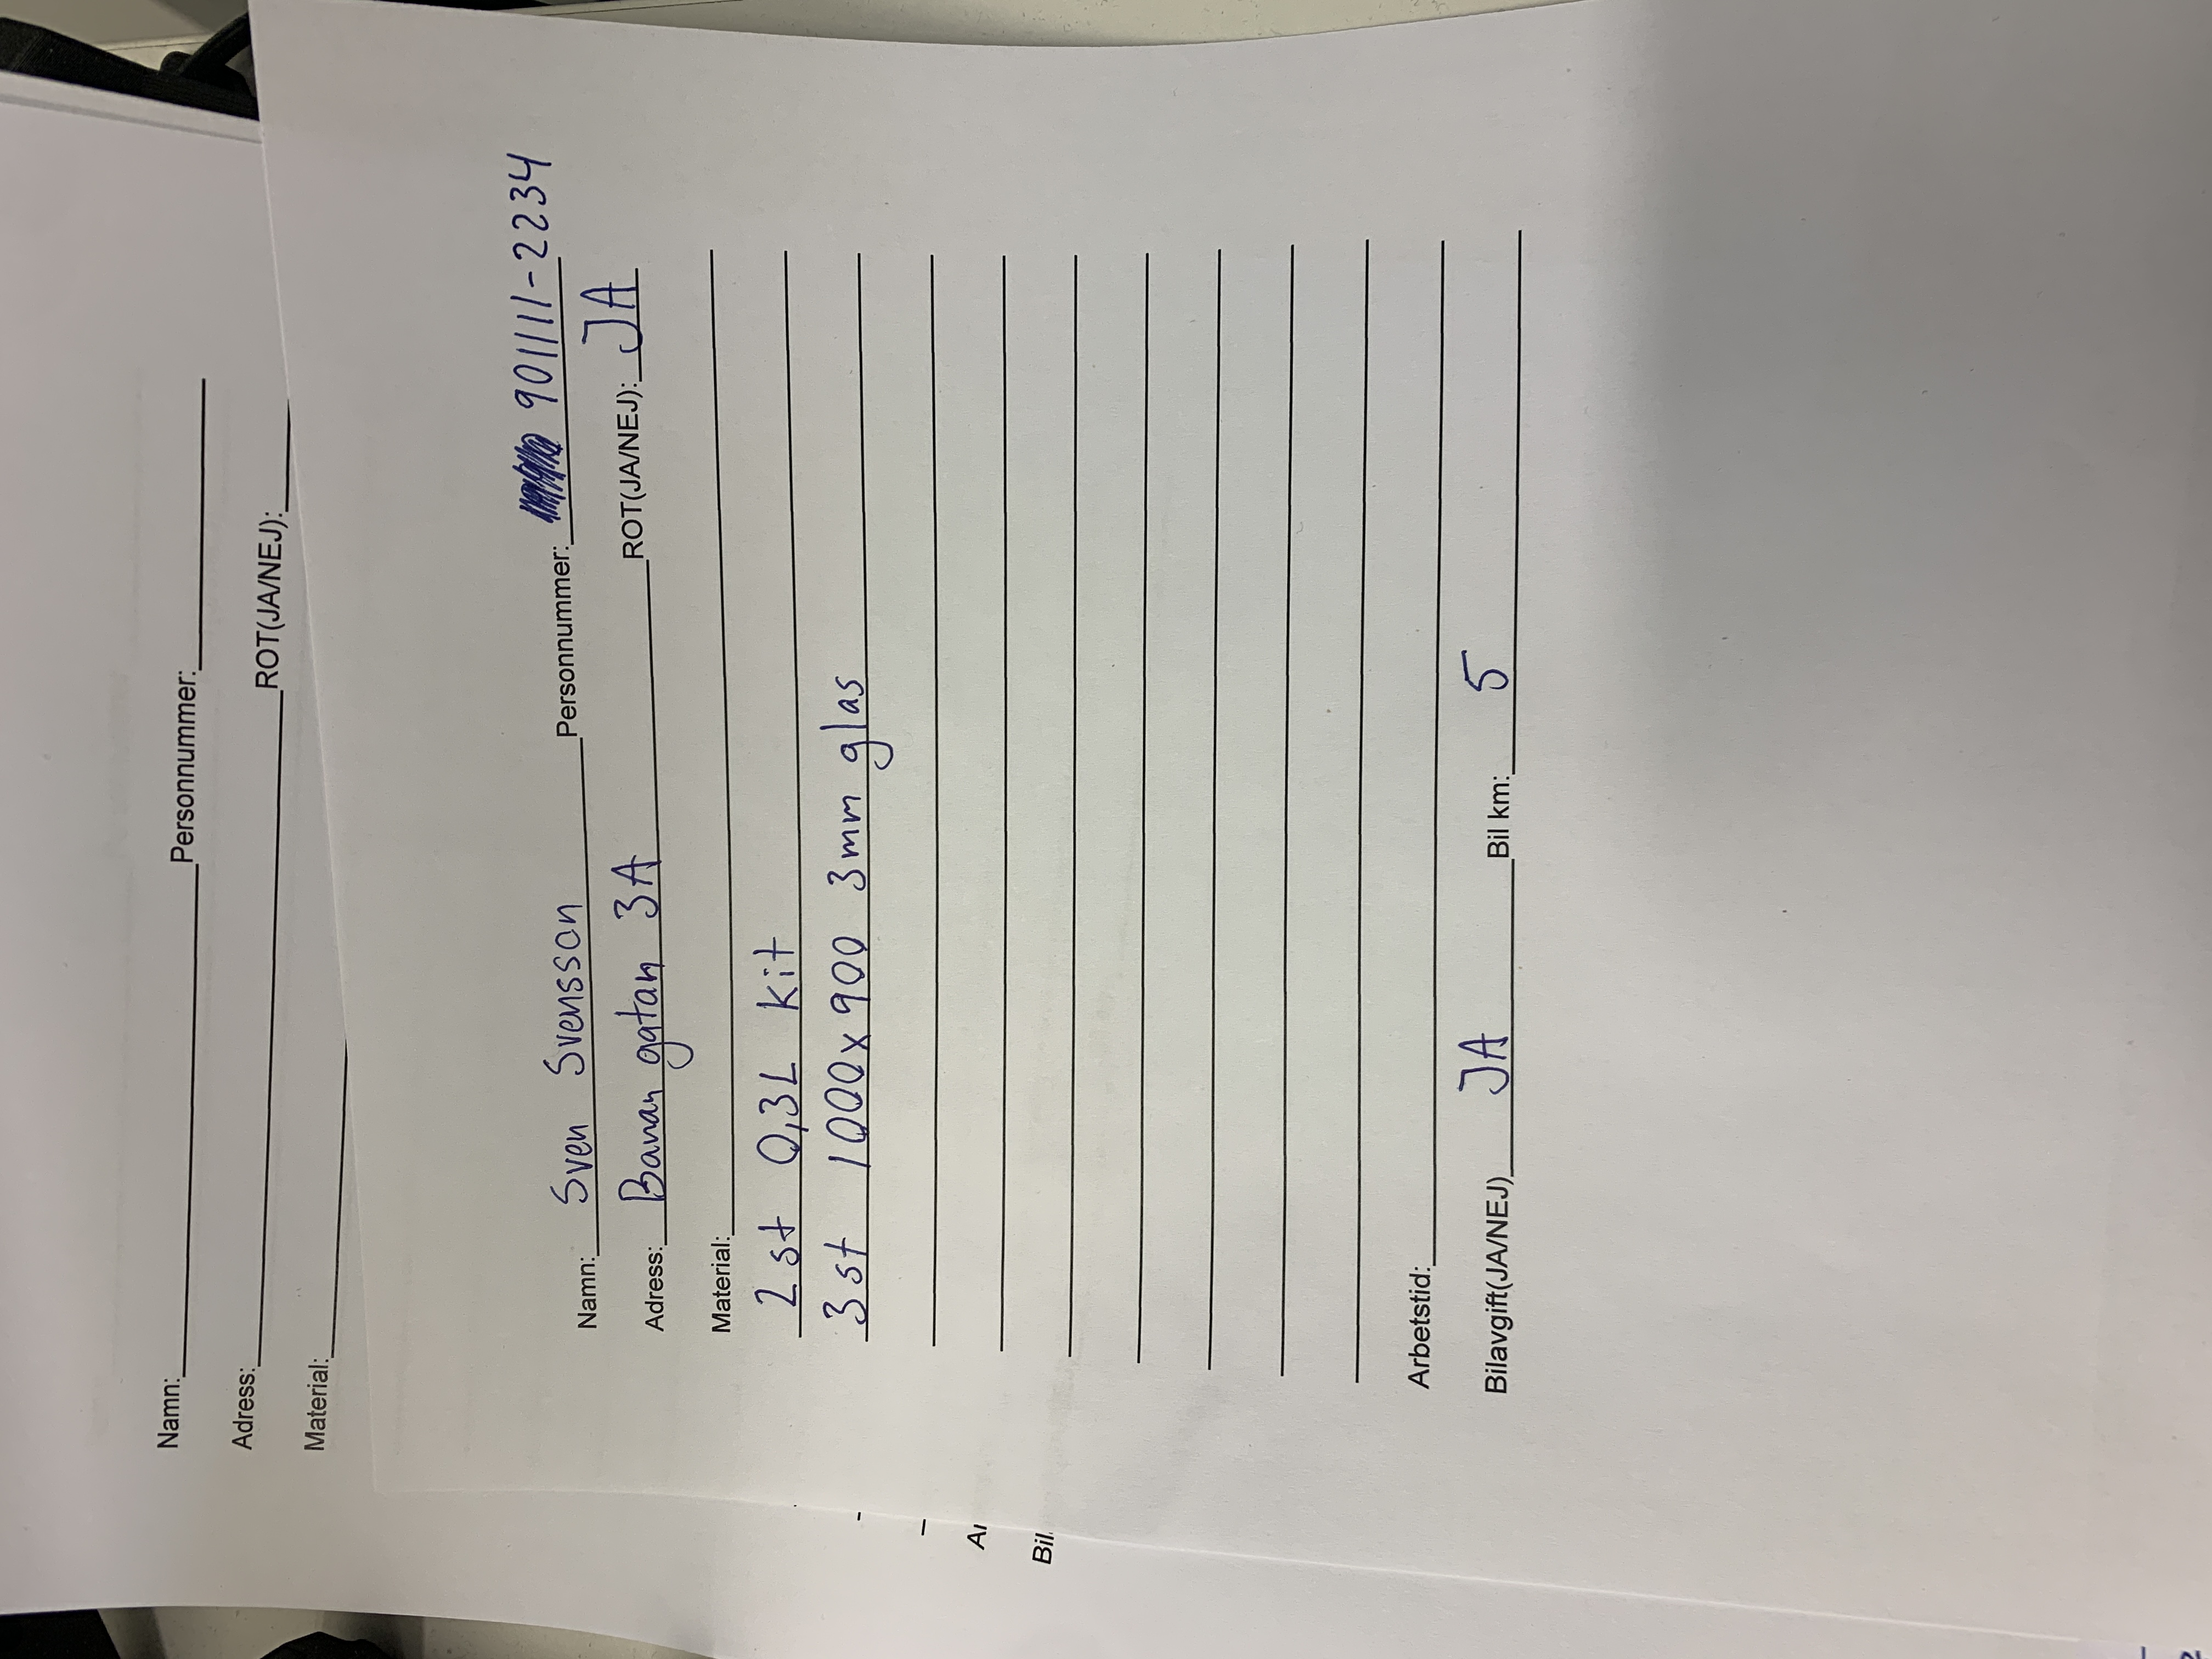 Namn: Personnummer:
Adress: ROT(JA/NEJ):
Material:
Namn: Sven Svensson Personnummer: 901111-2234
Adress: Banan gatan 3A ROT(JA/NEJ): JA
Material:
2 st 0,3L kit
3 st 1000x900 3mm glas
Arbetstid:
Bilavgift(JA/NEJ) JA Bil km: 5